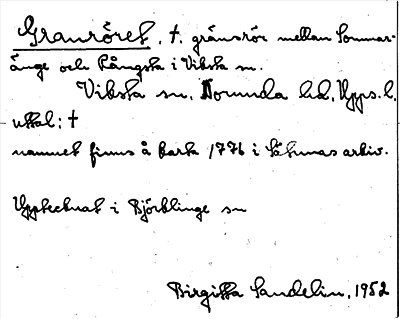 Granröret, †, gränsrör mellan Sommar-
änge och Långsta i Viksta sn.
Viksta sn, Norunda hd, Upps. l.
uttal: †
namnet finns å karta 1776 i Sätunas arkiv.
Upptecknat i Björklinge sn
Birgitta Sandelin, 1952